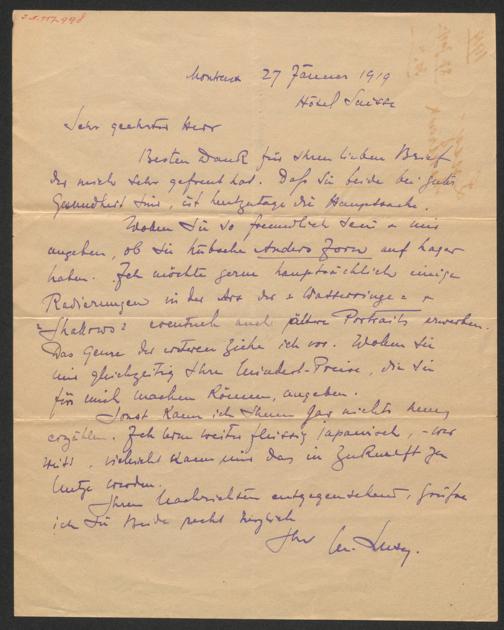 Montreux 27 Jänner 1919
Hôtel Suisse
Sehr geehrter Herr
Besten Dank für Ihren lieben Brief
der mich sehr gefreut hat. Daß Sie beide bei guter
Gesundheit sind, ist heutzutage die Hauptsache.
Wollen Sie so freundlich sein & mir
angeben, ob Sie hübsche Anders Zorn auf Lager
haben. Ich möchte gerne hauptsächlich einige
Radierungen in der Art der "Wasserringe" &
"Shallows" eventuell auch ältere Portraits erwerben.
Das Genre der ersteren ziehe ich vor. Wollen Sie
mir gleichzeitig Ihre Mindest-Preise, die Sie
für mich machen können, angeben.
Sonst kann ich Ihnen gar nichts neues
erzählen. Ich lerne weiter fleissig japanisch, - wer
weiss, vielleicht kann mir das in Zukunft zu
Nutze werden.
Ihren Nachrichten entgegensehend, grüsse
ich Sie Beide recht herzlich
Ihr